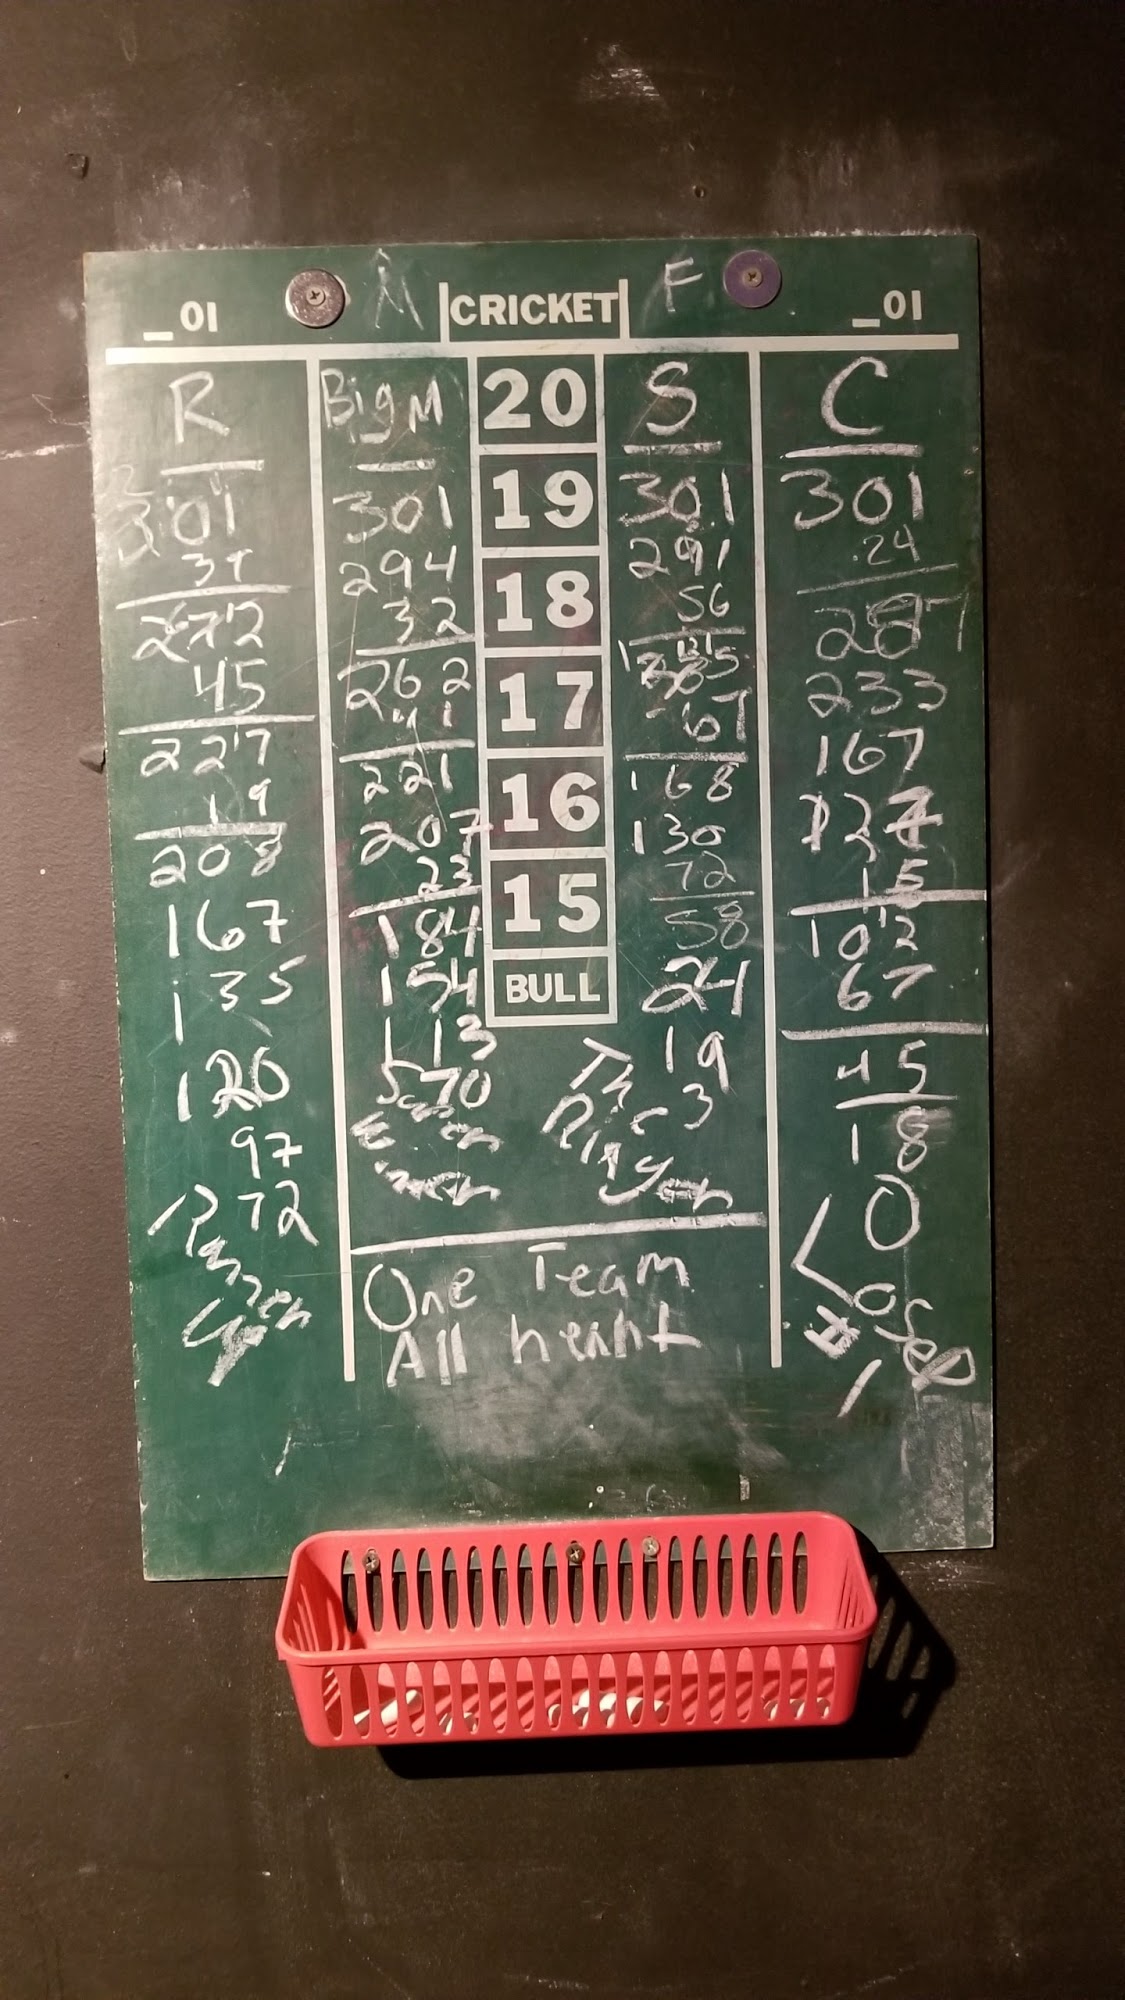 _01 M CRICKET F _01
R
301
272
45
227
19
208
167
135
120
97
72
Runner
Up
Big M
301
294
32
262
41
221
207
23
184
154
113
70
20
19
18
17
16
15
BULL
S
301
291
56
67
168
130
72
58
24
19
3
The
Player
C
301
24
233
167
15
102
67
45
18
0
Loser
#1
One Team
All heart